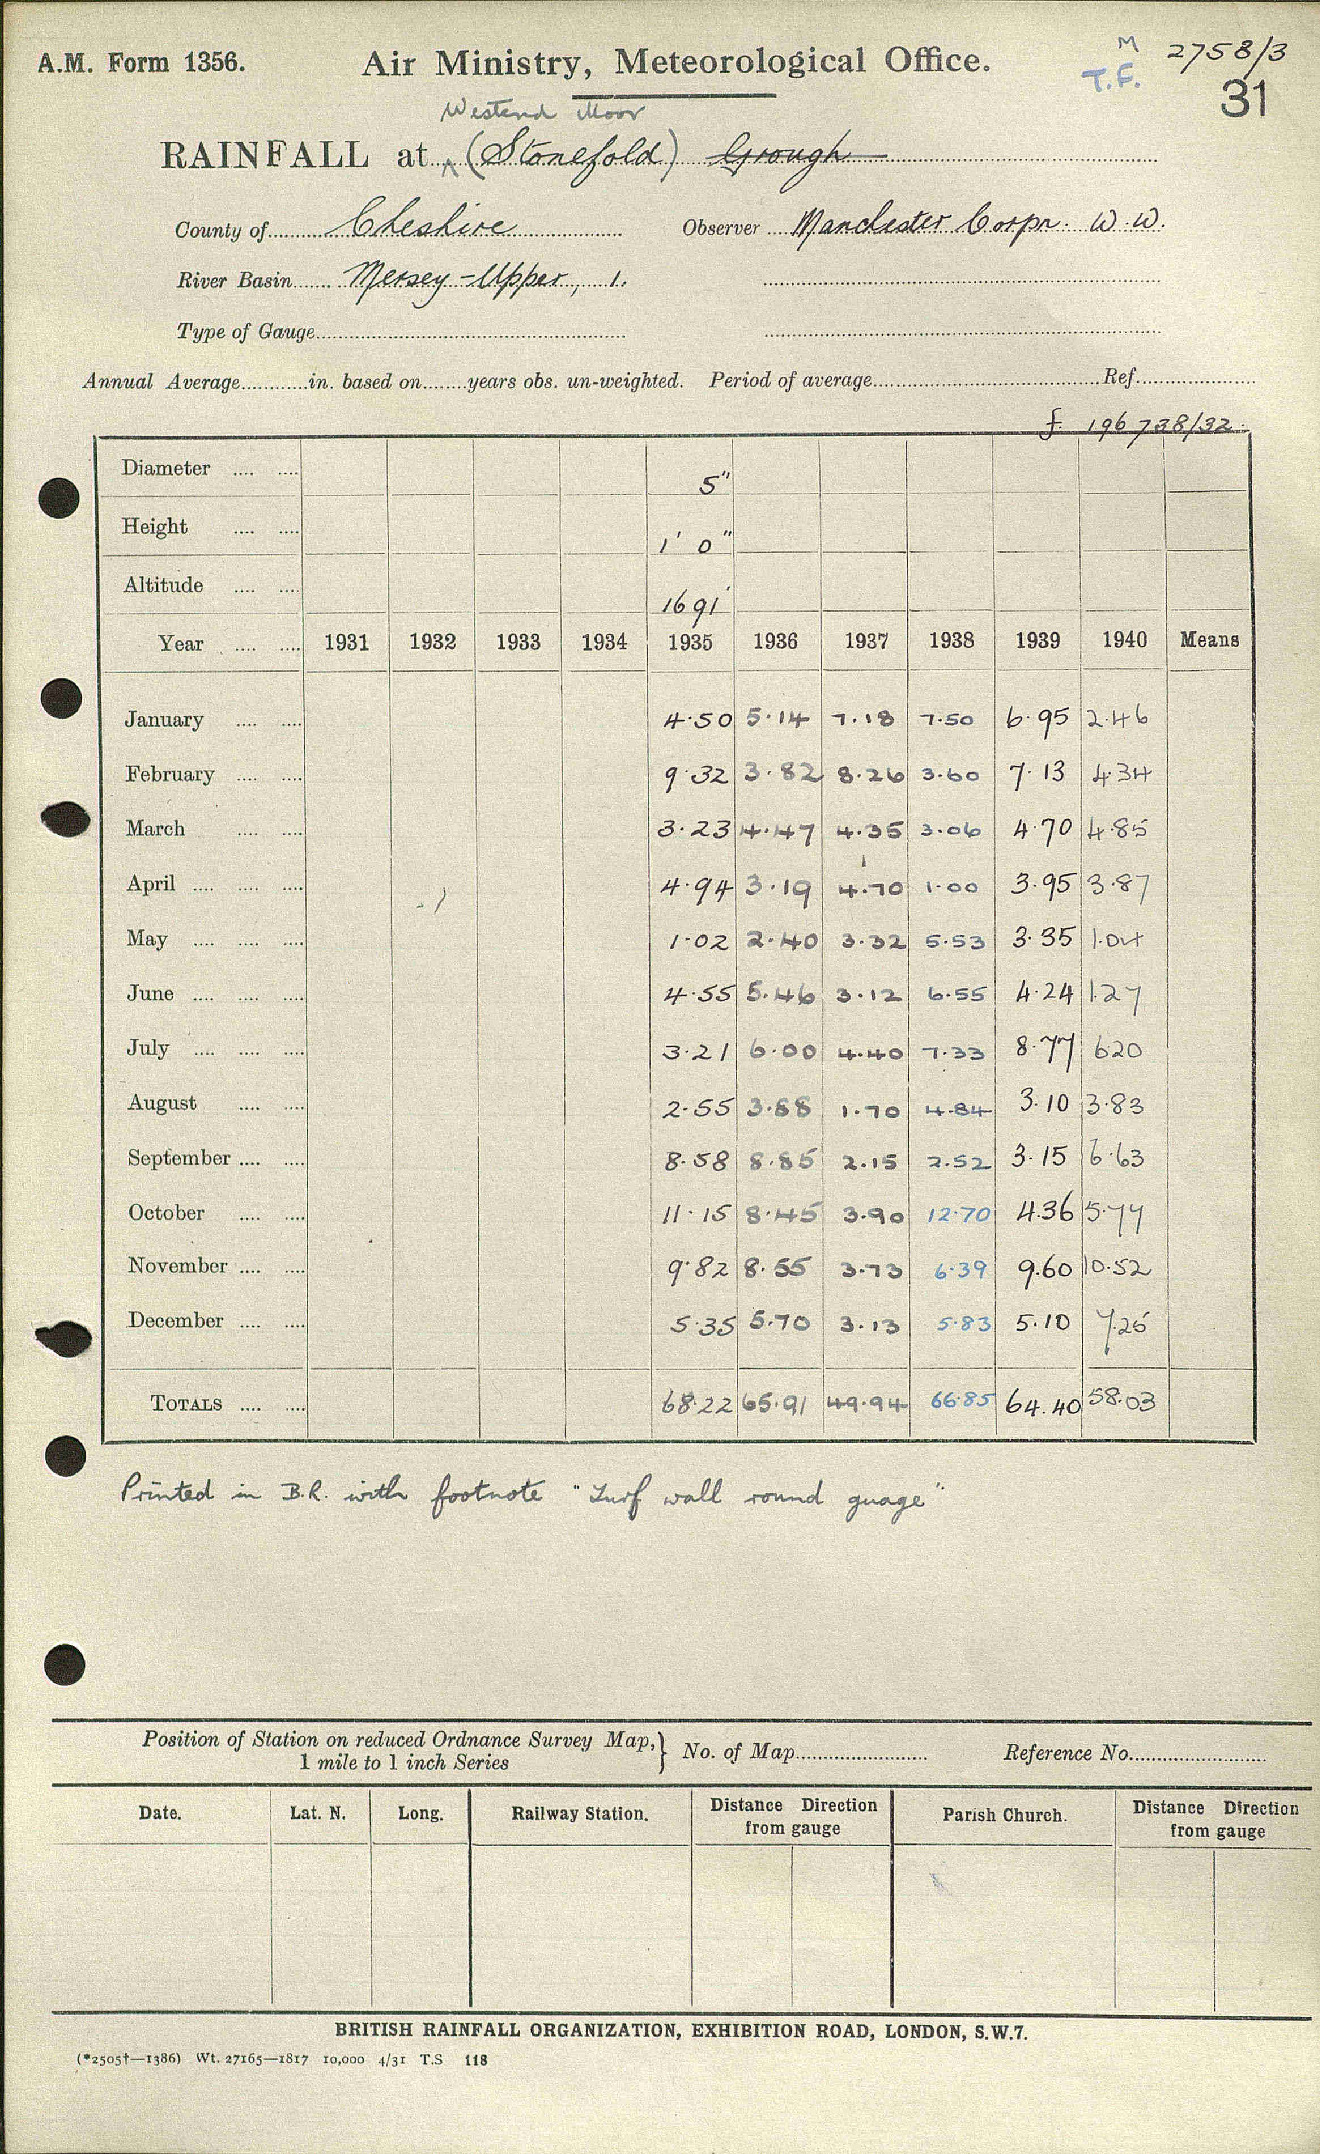 A.M. Form 1356. Air Ministry, Meteorological Office. M 2758/3
T.F. 31
Westend Moor
RAINFALL at (Stonefold) Grough
County of Cheshire Observer Manchester Corpn. W.W.
River Basin Mersey-Upper, 1.
Type of Gauge
Annual Average in. based on years obs. un-weighted. Period of average Ref.
f. 196738/32
Diameter 5"
Height 1' 0"
Altitude 1691'
Year 1931 1932 1933 1934 1935 1936 1937 1938 1939 1940 Means
January 4.50 5.14 7.18 7.50 6.95 2.46
February 9.32 3.82 8.26 3.60 7.13 4.34
March 3.23 4.47 4.35 3.06 4.70 4.85
April 4.94 3.19 4.70 1.00 3.95 3.87
May 1.02 2.40 3.32 5.53 3.35 1.04
June 4.55 5.46 3.12 6.55 4.24 1.27
July 3.21 6.00 4.40 7.33 8.77 620
August 2.55 3.88 1.70 4.84 3.10 3.83
September 8.58 8.85 2.15 2.52 3.15 6.63
October 11.15 8.45 3.90 12.70 4.36 5.77
November 9.82 8.55 3.73 6.39 9.60 10.52
December 5.35 5.70 3.13 5.83 5.10 7.25
TOTALS 68.22 65.91 49.94 66.85 64.40 58.03
Printed in B.R. with footnote "Turf wall round guage"
Position of Station on reduced Ordnance Survey Map, } No. of Map Reference No.
1 mile to 1 inch Series
Date. Lat. N. Long. Railway Station. Distance Direction from gauge Parish Church. Distance Direction from gauge
BRITISH RAINFALL ORGANIZATION, EXHIBITION ROAD, LONDON, S.W.7.
(*2505†—1386) Wt. 27165—1817 10,000 4/31 T.S 118